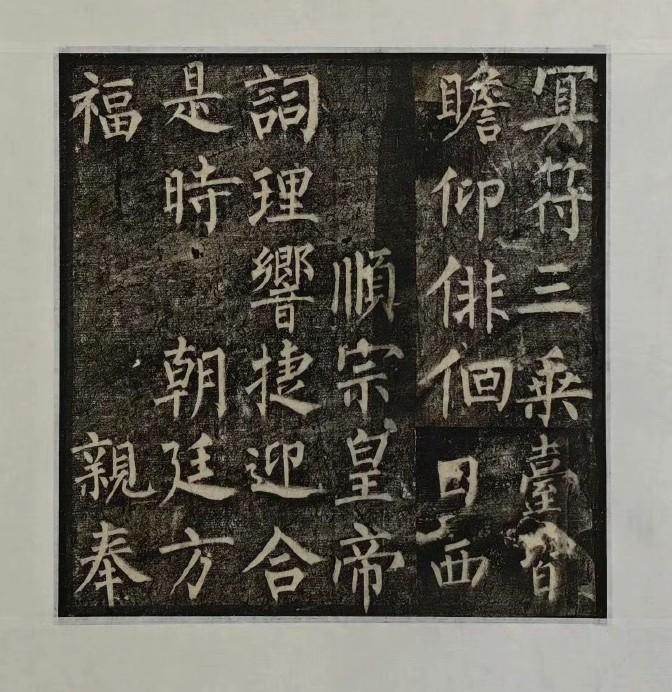 冥符三乗臺皆
瞻仰俳佪日西
順宗皇帝
詞理響捷迎合
是時 朝廷方
福 親奉